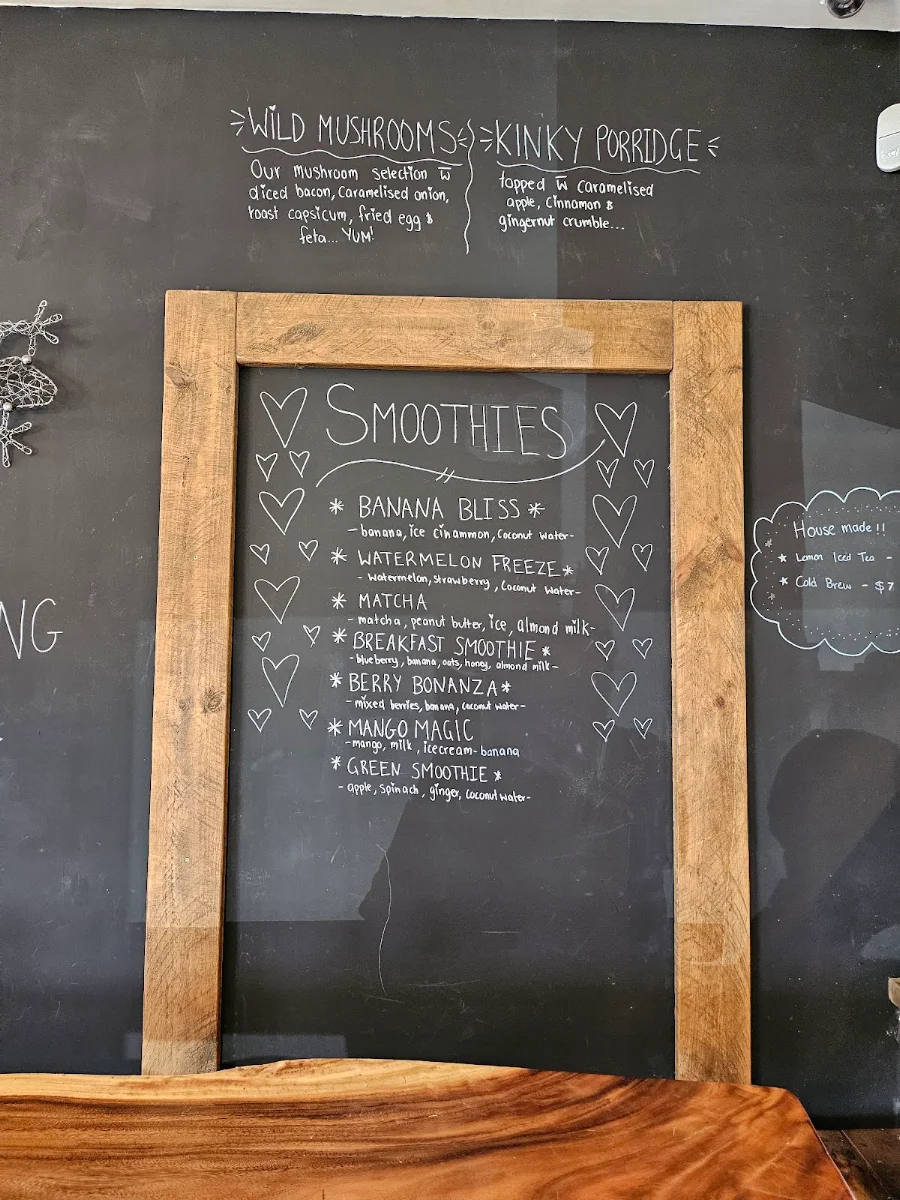 WILD MUSHROOMS
Our mushroom selection w̅
diced bacon, caramelised onion,
roast capsicum, fried egg &
feta... YUM!
KINKY PORRIDGE
topped w̅ caramelised
apple, cinnamon &
gingernut crumble...
SMOOTHIES
* BANANA BLISS *
- banana, ice cinammon, coconut water -
* WATERMELON FREEZE *
- watermelon, strawberry, coconut water -
* MATCHA
- matcha, peanut butter, ice, almond milk -
* BREAKFAST SMOOTHIE *
- blueberry, banana, oats, honey, almond milk -
* BERRY BONANZA *
- mixed berries, banana, coconut water -
* MANGO MAGIC
- mango, milk, icecream - banana
* GREEN SMOOTHIE *
- apple, spinach, ginger, coconut water -
House made !!
* Lemon Iced Tea -
* Cold Brew - $7
NG